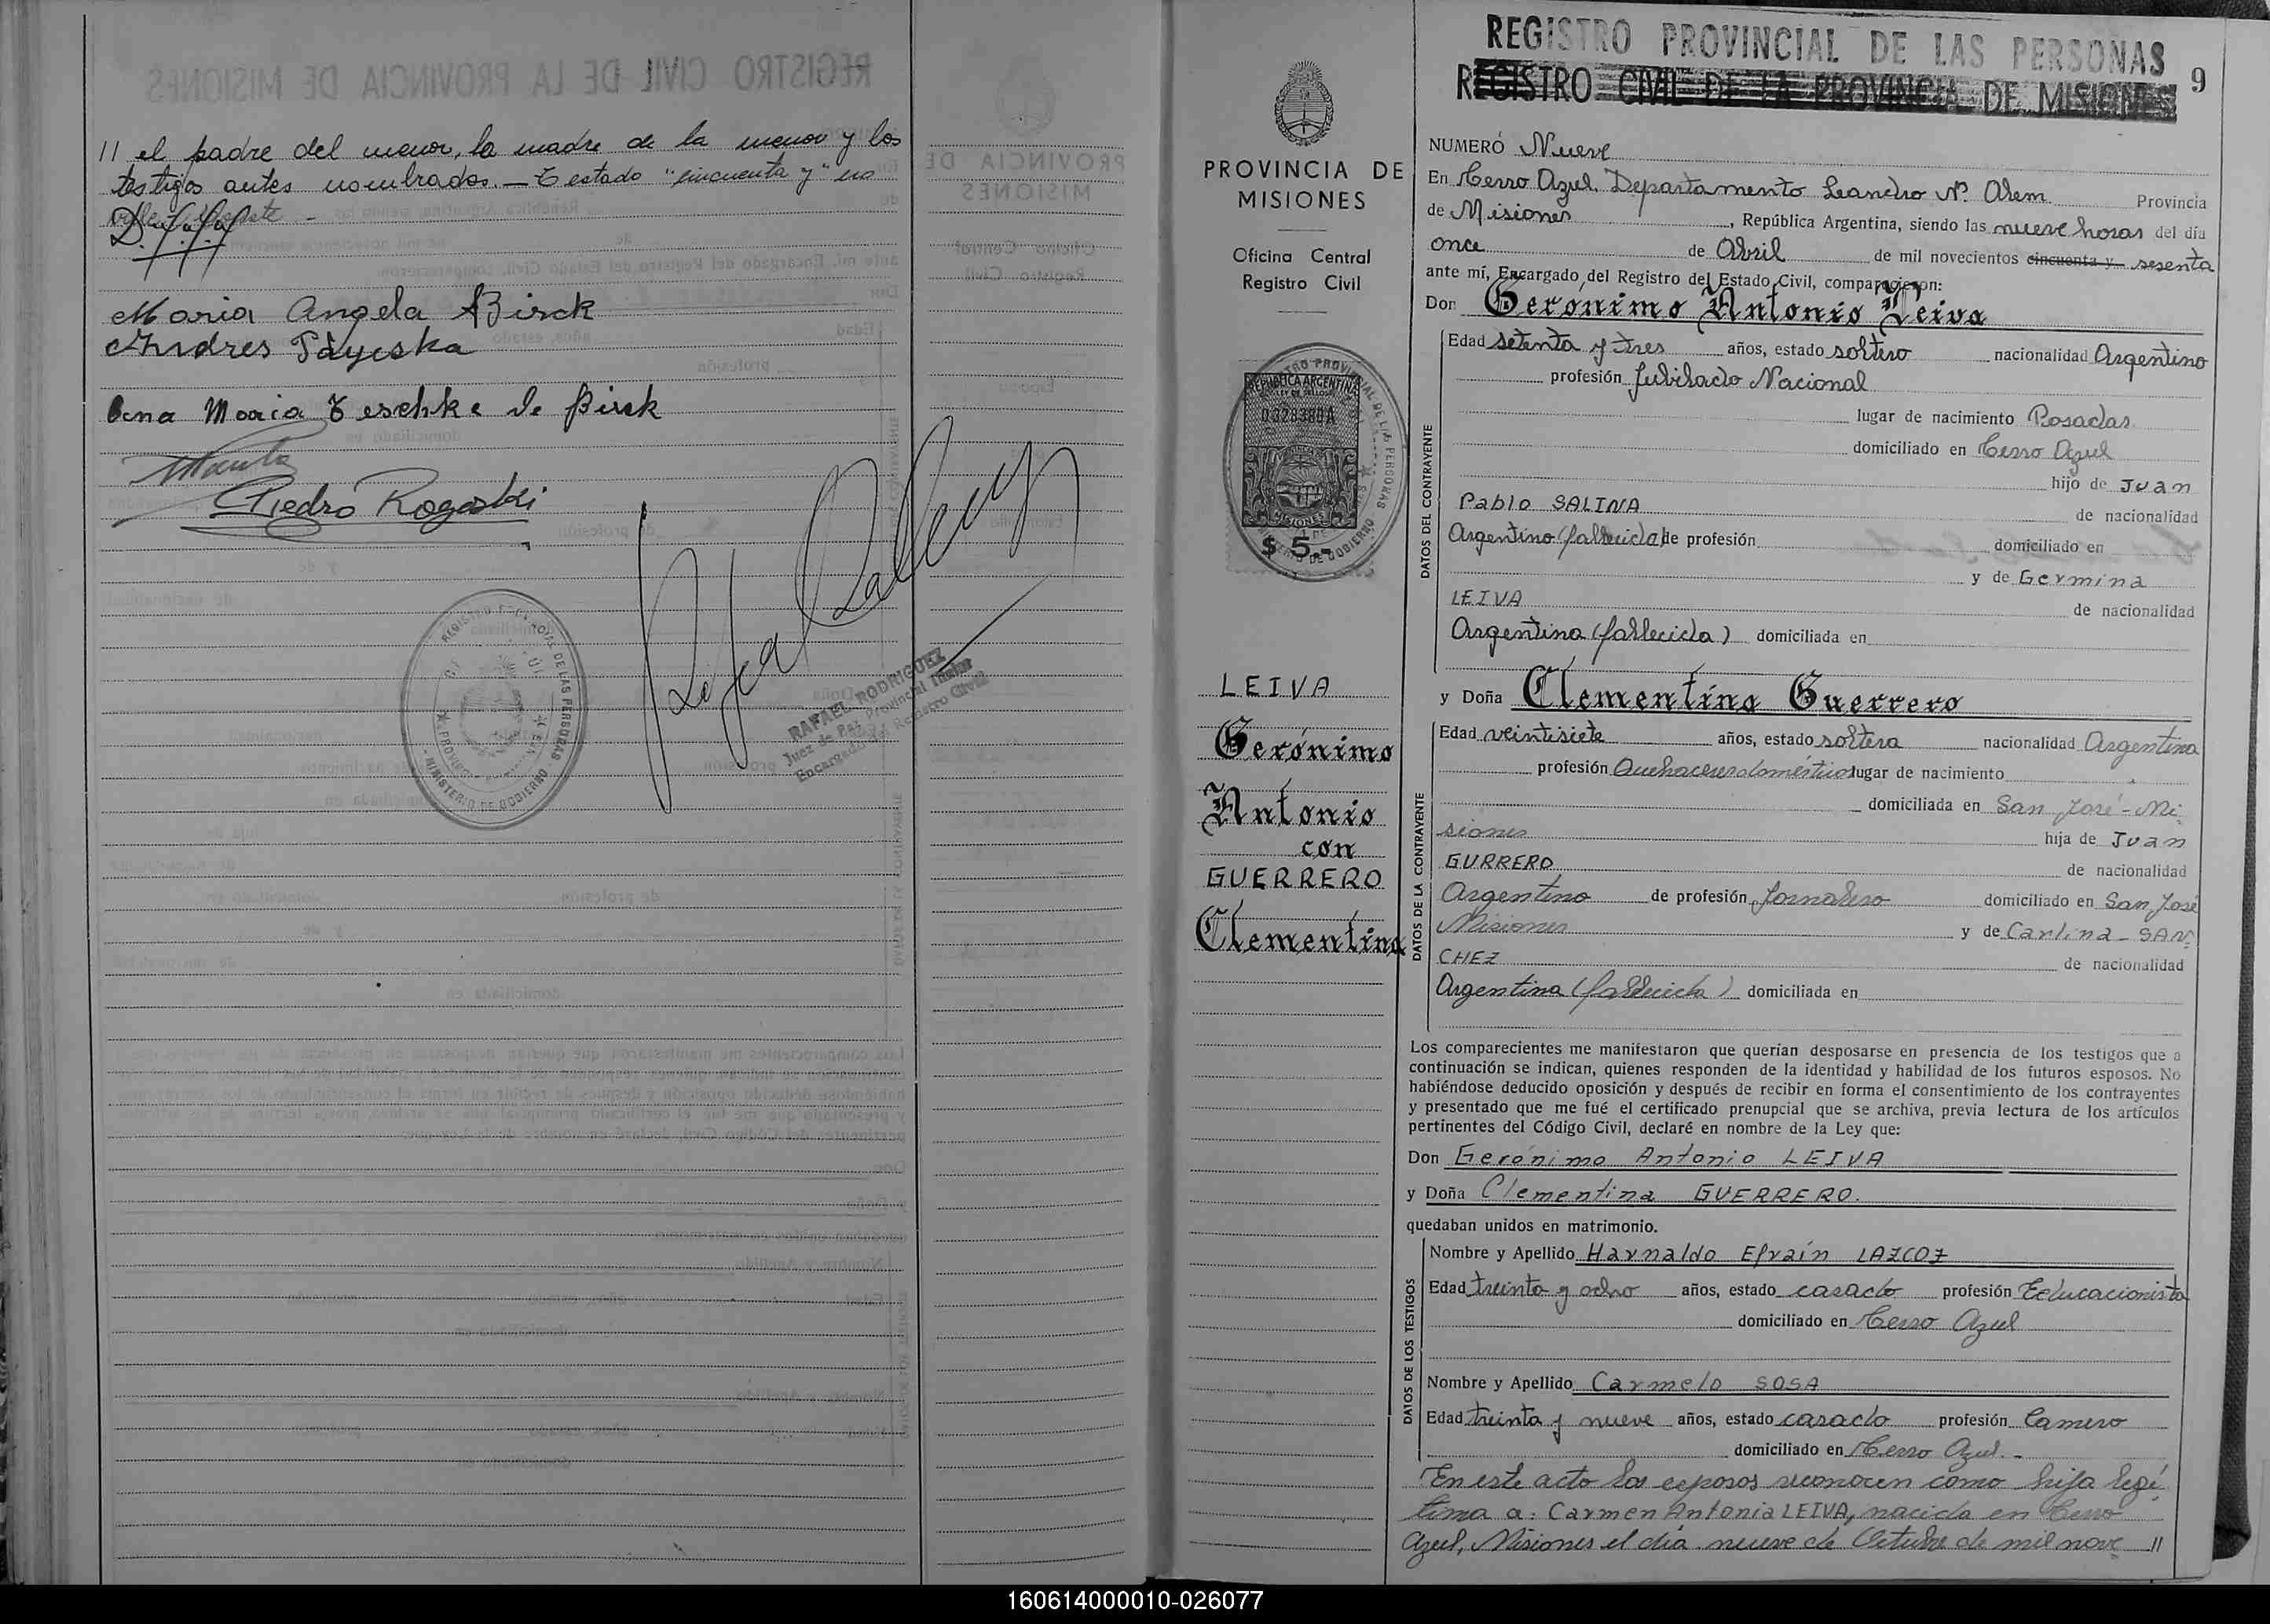 // el padre del menor, la madre de la menor y los
testigos antes nombrados. — Testado "cincuenta y" no
vale.
Maria Angela Birck
Andres Payeska
Ana Maria Teschke de Birck
Piedro Rogoski
RAFAEL RODRIGUEZ
Juez de Paz Provincial Titular
Encargado del Registro Civil
PROVINCIA DE
MISIONES
Oficina Central
Registro Civil
REPUBLICA ARGENTINA
0328380A
MISIONES
$ 5.-
LEIVA
Gerónimo
Antonio
con
GUERRERO
Clementina
REGISTRO PROVINCIAL DE LAS PERSONAS
REGISTRO CIVIL DE LA PROVINCIA DE MISIONES
9
NUMERO Nueve
En Cerro Azul, Departamento Leandro N. Alem Provincia
de Misiones, República Argentina, siendo las nueve horas del día
once de Abril de mil novecientos cincuenta y sesenta
ante mí, Encargado del Registro del Estado Civil, comparecieron:
Don Gerónimo Antonio Leiva
DATOS DEL CONTRAYENTE
Edad setenta y tres años, estado soltero nacionalidad Argentino
profesión Jubilado Nacional
lugar de nacimiento Posadas
domiciliado en Cerro Azul
hijo de Juan
Pablo SALINA de nacionalidad
Argentino (fallecido) de profesión domiciliado en
y de Germina
LEIVA de nacionalidad
Argentina (fallecida) domiciliada en
y Doña Clementina Guerrero
DATOS DE LA CONTRAYENTE
Edad veintisiete años, estado soltera nacionalidad Argentina
profesión Quehaceres domésticos lugar de nacimiento
domiciliada en San José - Mi-
siones hija de Juan
GURRERO de nacionalidad
Argentino de profesión Jornalero domiciliado en San José
Misiones y de Carlina - SAN-
CHEZ de nacionalidad
Argentina (fallecida) domiciliada en
Los comparecientes me manifestaron que querían desposarse en presencia de los testigos que a
continuación se indican, quienes responden de la identidad y habilidad de los futuros esposos. No
habiéndose deducido oposición y después de recibir en forma el consentimiento de los contrayentes
y presentado que me fué el certificado prenupcial que se archiva, previa lectura de los artículos
pertinentes del Código Civil, declaré en nombre de la Ley que:
Don Gerónimo Antonio LEIVA
y Doña Clementina GUERRERO.
quedaban unidos en matrimonio.
DATOS DE LOS TESTIGOS
Nombre y Apellido Harnaldo Efraín LAZCOZ
Edad treinta y ocho años, estado casado profesión Educacionista
domiciliado en Cerro Azul
Nombre y Apellido Carmelo SOSA
Edad treinta y nueve años, estado casado profesión Camero
domiciliado en Cerro Azul.-
En este acto los esposos reconocen como hija legí-
tima a: Carmen Antonia LEIVA, nacida en Cerro
Azul, Misiones el día nueve de Octubre de mil nove //
160614000010-026077